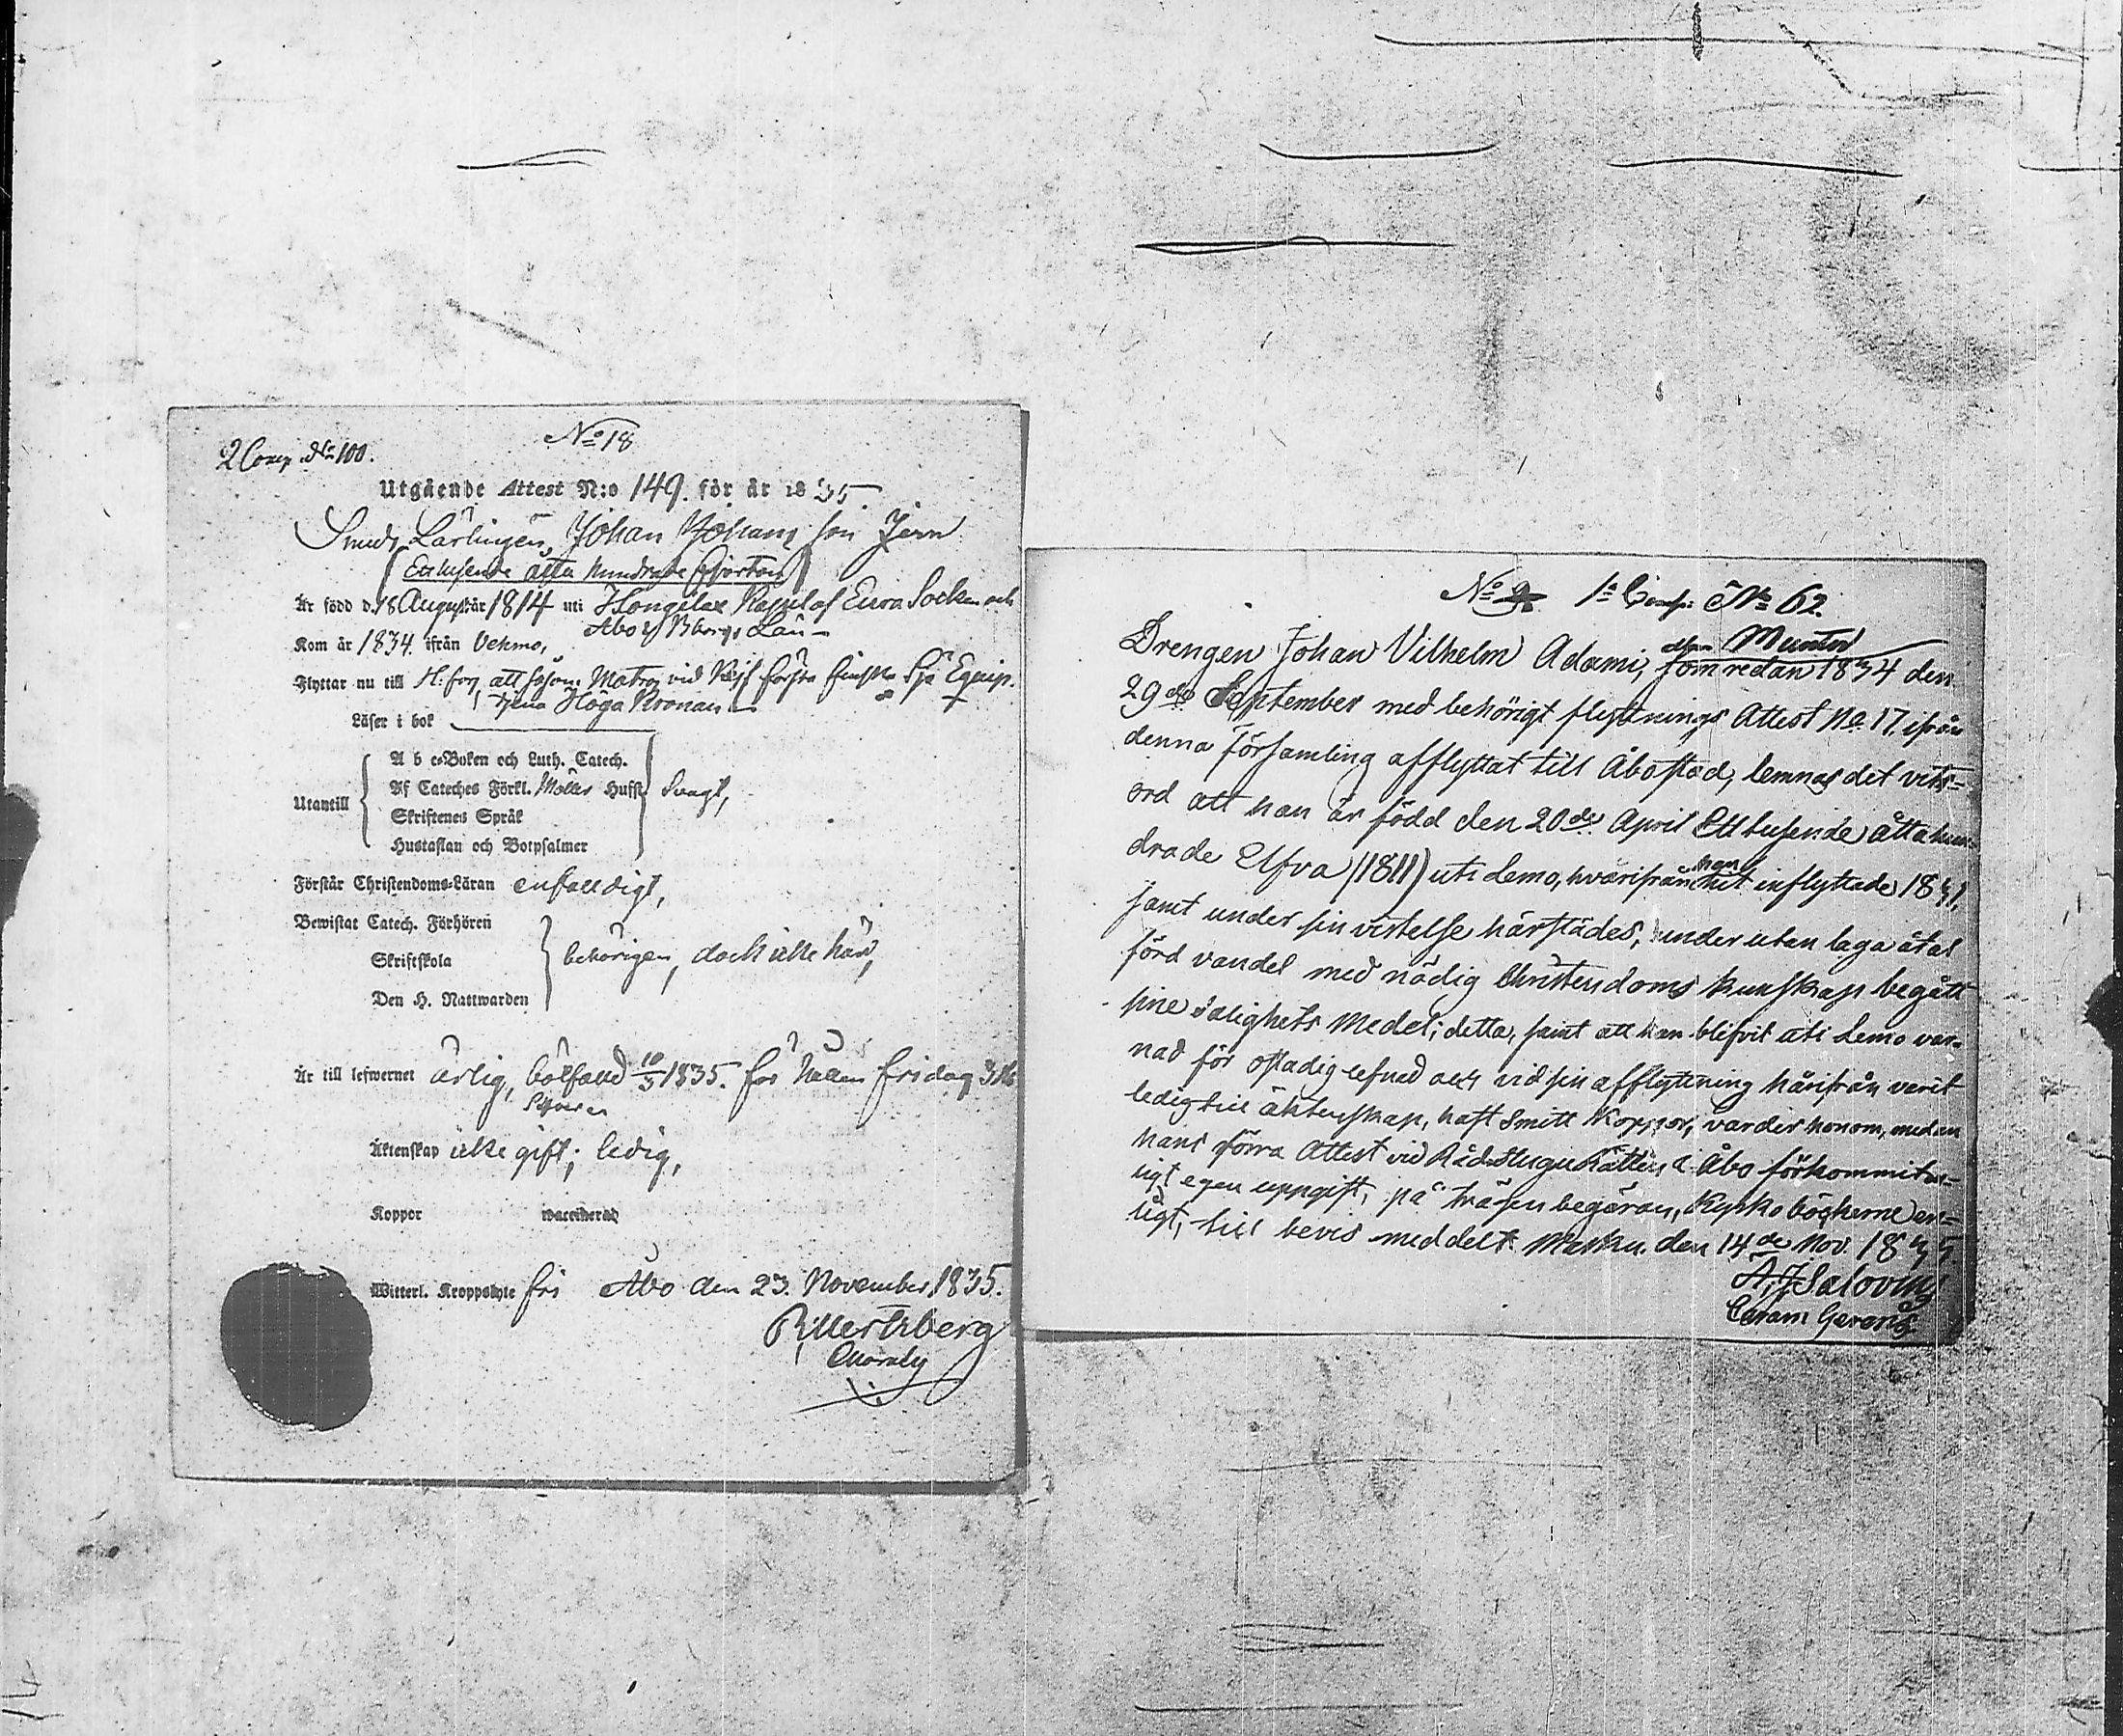 No 18
2 Comp. No 100.
Utgående Attest N:o 149. för år 1835
Smeds Lärlingen, Johan Johans son Jern
(Ettusende åtta hundrade fjorton)
Är född d. 18 August år 1814 uti Honglax Kapel af Eura Socken och
Åbo & Bborgs Län
Kom år 1834 ifrån Vehmo,
Flyttar nu till H.fors, att såsom Matros vid första finska Sjö Equip.
tjena Höga Kronan
Läser i bok
Utantill
A b c-Boken och Luth. Catech.
Af Cateches Förkl. Möllers Hufst.
Skriftenes Språk
Hustaflan och Botpsalmer
Svagt,
Förstår Christendoms-Läran enfaldigt,
Bewistat Catech. Förhören
Skriftskola
Den H. Nattwarden
behörigen, dock icke här,
Är till lefwernet ärlig, bötfäld 10/3 1835. för fridag
Äktenskap icke gift; ledig,
Koppor waccinerad
Witterl. Kroppslyte fri Åbo den 23. November, 1835.
No 9 1a Comp: No 62.
Munter
Drengen Johan Vilhelm Adami, som redan 1834 den
29de September med behörigt flyttnings Attest No 17. ifrån
denna Församling afflyttat till Åbo stad, lemnas det vits-
ord att han är född den 20de April Ett tusende åtta hun-
drade Elfva (1811) uti Lemo, hvarifrån han hit inflyttade 1831,
samt under sin vistelse härstädes, under utan laga åtal
förd vandel med nödig Christendoms kunskap begått
sine Salighets Medel; detta, samt att han blifvit uti Lemo var-
nad för ostadig lefnad och vid sin afflyttning härifrån varit
ledig till äktenskap, haft Smitt Koppor, varder honom, medan
hans förra Attest vid Rådstugu Rätten i Åbo förkommit en-
ligt egen uppgift, på träget begäran, Kyrko böckerne en-
ligt, till bevis meddelt. Masku den 14de Nov. 1835
A. J. Salovius